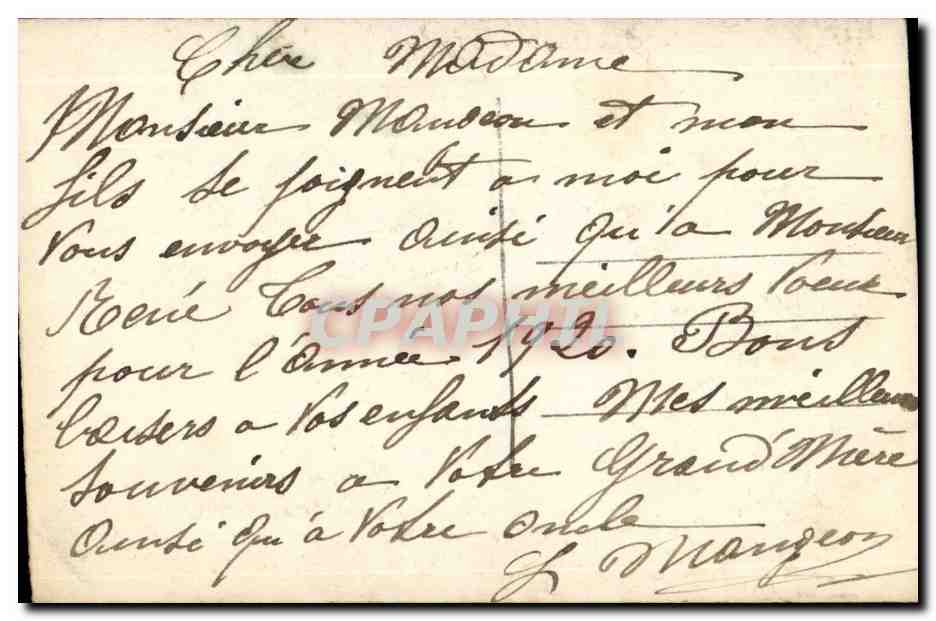 Chère Madame
Monsieur Mangeon et mon
fils se joignent a moi pour
Vous envoyer ainsi qu'a Monsieur
René Tous nos meilleurs Voeux
CPAPHIL
pour l'année 1920. Bons
baisers a Vos enfants Mes meilleurs
Souvenirs a Votre Grand'Mère
Ainsi qu'à Votre oncle
L Mangeon